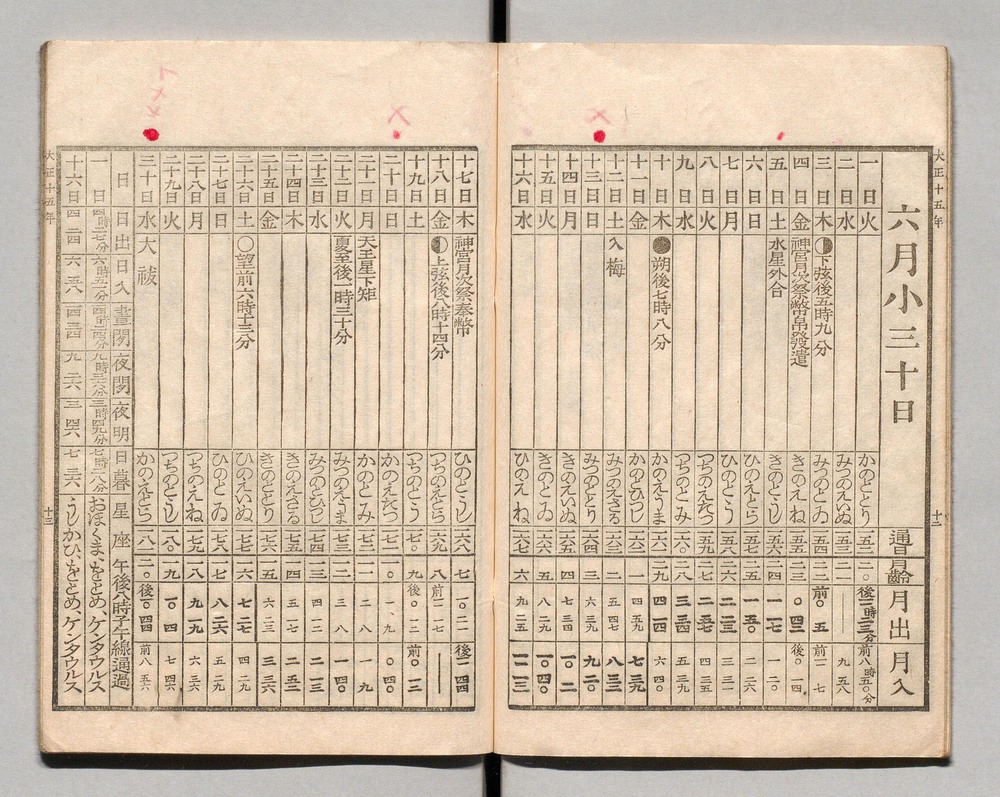 大正十五年
六月小三十日
通日 月齢 月出 月入
一日 火 かのととり 一五二 二〇 後一一時三三分 前八時五〇分
二日 水 みつのえいぬ 一五三 二一 —— 九 五八
三日 木 下弦後五時九分 みつのとゐ 一五四 二二 前〇 五 前一一 七
四日 金 神宮月次祭幣帛発遣 きのえね 一五五 二三 〇 四三 後〇 一四
五日 土 水星外合 きのとうし 一五六 二四 一 一七 一 二〇
六日 日 ひのえとら 一五七 二五 一 五〇 二 二六
七日 月 ひのとう 一五八 二六 二 二三 三 三一
八日 火 つちのえたつ 一五九 二七 二 五七 四 三五
九日 水 つちのとみ 一六〇 二八 三 三四 五 三九
十日 木 朔後七時八分 かのえうま 一六一 二九 四 一四 六 四〇
十一日 金 かのとひつじ 一六二 一 四 五九 七 三九
十二日 土 入梅 みつのえさる 一六三 二 八 三三
十三日 日 みつのととり 一六四 三 九 二〇
十四日 月 きのえいぬ 一六五 四 七 三四 一〇 二
十五日 火 きのとゐ 一六六 五 八 二九 一〇 四〇
十六日 水 ひのえね 一六七 六 九 二五 一一 一三
十二
大正十五年
十七日 木 神宮月次祭奉幣 ひのとうし 一六八 七 一〇 二一 後一一 四四
十八日 金 上弦後八時十四分 つちのえとら 一六九 八 前一一 一七 ——
十九日 土 つちのとう 一七〇 九 後〇 一二 前〇 一三
二十日 日 かのえたつ 一七一 一〇 一 九 〇 四〇
二十一日 月 天王星下矩 かのとみ 一七二 一一 二 八 一 九
二十二日 火 夏至後一時三十分 みつのえうま 一七三 一二 三 八 一 四〇
二十三日 水 みつのとひつじ 一七四 一三 四 一二 二 一三
二十四日 木 きのえさる 一七五 一四 五 一七 二 五二
二十五日 金 きのととり 一七六 一五 六 二三 三 三六
二十六日 土 望前六時十三分 ひのえいぬ 一七七 一六 七 二七 四 二九
二十七日 日 ひのとゐ 一七八 一七 八 二六 五 二九
二十八日 月 つちのえね 一七九 一八 九 一九 六 三五
二十九日 火 つちのとうし 一八〇 一九 一〇 四 七 四六
三十日 水 大祓 かのえとら 一八一 二〇 後一〇 四四 前八 五六
日 日出 日入 昼間 夜間 夜明 日暮 星座 午後八時子午線通過
一日 四時二七分 六時五一分 一四時二四分 九時三六分 三時四九分 七時二八分 おほくま、をとめ、ケンタウルス
十六日 四 二四 六 五八 一四 三四 九 二六 三 四六 七 三六 うしかひ、をとめ、ケンタウルス
十三